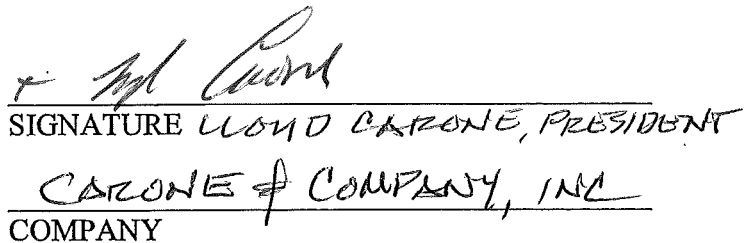 SIGNATURE LLOYD CARONE, PRESIDENT
CARONE & COMPANY, INC
COMPANY